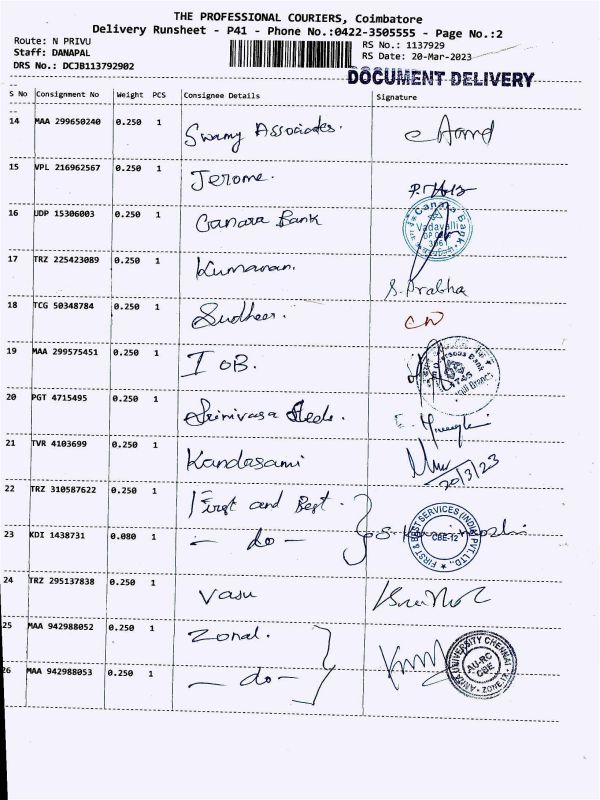 THE PROFESSIONAL COURIERS, Coimbatore
Delivery Runsheet - P41 - Phone No.:0422-3505555 - Page No.:2
Route: N PRIVU
RS No.: 1137929
Staff: DANAPAL
RS Date: 20-Mar-2023
DRS No.: DCJB113792902
DOCUMENT DELIVERY
S No Consignment No Weight PCS Consignee Details Signature
14 MAA 299650240 0.250 1 Swamy Associates.
15 VPL 216962567 0.250 1 Jerome.
16 UDP 15306003 0.250 1 Canara Bank
Canara Bank
Vadavalli
17 TRZ 225423089 0.250 1 Kumaran. S. Prabha
18 TCG 50348784 0.250 1 Sudheer.
19 MAA 299575451 0.250 1 IOB.
20 PGT 4715495 0.250 1 Srinivasa
21 TVR 4103699 0.250 1 Kandasami 20/3/23
22 TRZ 310587622 0.250 1 First and Best.
23 KDI 1438731 0.080 1 - do -
FIRST & BEST SERVICES (INDIA) PVT. LTD.,
CBE-12
24 TRZ 295137838 0.250 1 Vasu
25 MAA 942988052 0.250 1 Zonal.
26 MAA 942988053 0.250 1 - do -
ANNA UNIVERSITY CHENNAI
AU-RC
CBE